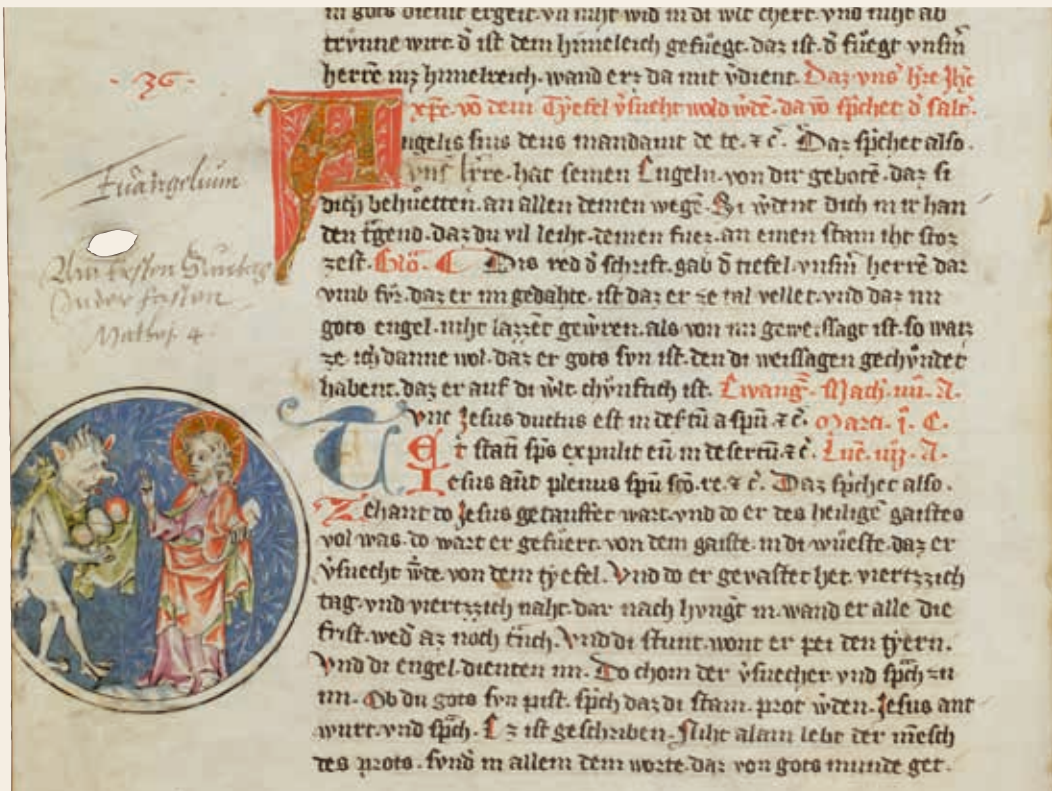 in gots dienst ergeit. vn niht wid in di werlt chert. vnd niht ab
trvnne wirt. d̾ ist dem himeleich gefuegt. daz ist. d̾ fuegt vnsm̄
herrē inz himelreich. wand erz da mit v̾dient. Daz vns h̾re Jh̄c
xp̄c. vō dem Tyefel v̾sucht wold w̾dē. da vō sp̄chet d̾ salt̾.
Angelis suis deus mandauit de te. ⁊ c̾. Daz sp̄ichet also.
vns̾ h̾re. hat seinen Engeln. von dir gebotē. daz si
dich behuetten. an allen deinen wegē. Si w̾dent dich in ir han
den t̾gend. daz du vil leiht. deinen fuez. an einen stain iht stoz
zest. Glō. Dis red d̾ schrift. gab d̾ tiefel. vnsm̄ herrē dar
vmb fv̾r. daz er im gedahte. ist daz er ze tal vellet. vnd daz in
gots engel. niht lazzēt gew̾ren. als von im geweissagt ist. so waiz
ze ich danne wol. daz er gots svn ist. den di weissagen gechvndet
habent. daz er auf di w̾lt chvnftich ist. Ewang̾. Math. iiii. A.
Tvnc Jesus ductus est in des̾tū a sp̄u. ⁊ c̾. Marci. i. C.
Et statī sp̄s expulit eū in desertū. ⁊ c̾. Luc̄. iiij. A.
Iesus aūt plenus sp̄u sc̄o. re. ⁊ c̾. Daz sp̄ichet also.
Zehant do Jesus getauffet wart. vnd do er des heiligē gaistes
vol was. do wart er gefuert. von dem gaiste. in di wueste. daz er
v̾suecht w̾de. von dem tyefel. Vnd do er gevastet het. viertzzich
tag. vnd viertzzich naht. dar nach hvng̾t in. wand er alle die
frist. wed̾ az noch t̾nch. Vnd di stunt. wont er pei den tyern.
Vnd di engel. dienten im. Do chom der v̾suecher. vnd sp̄ch zu
im. Ob du gots svn pist. sp̄ich daz di stain. prot w̾den. Jesus ant
wurt. vnd sp̄ch. Ez ist geschriben. Niht alain lebt der mēsch
des prots. svnd̾ in allem dem worte. daz von gots munde get.
· 36 ·
Euangelium
Am Ersten Suntag
In der fasten
Mathei 4